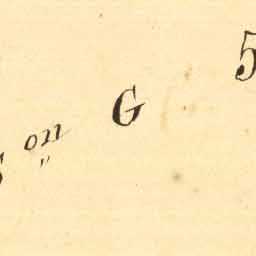 on G 5